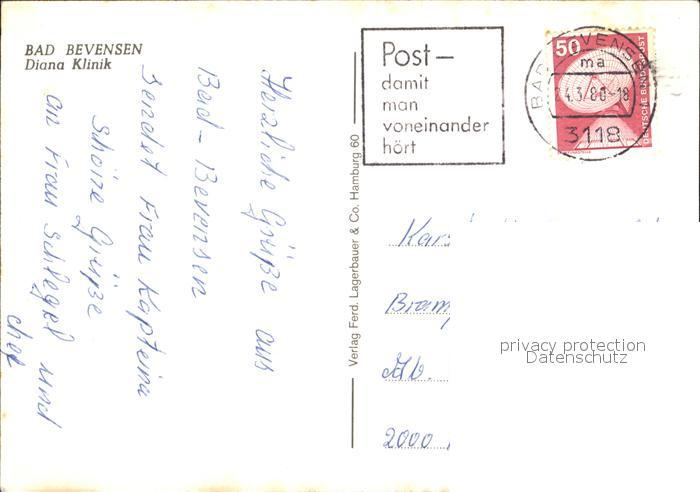 BAD BEVENSEN
Diana Klinik
Herzliche Grüße aus
Bad - Bevensen
sendet Frau Kapteina
schöne Grüße
an Frau Schlegel und
chef
Verlag Ferd. Lagerbauer & Co. Hamburg 60
Post –
damit
man
voneinander
hört
50
DEUTSCHE BUNDESPOST
BAD BEVENSEN
ma
24.3.80-18
3118
2000
privacy protection
Datenschutz